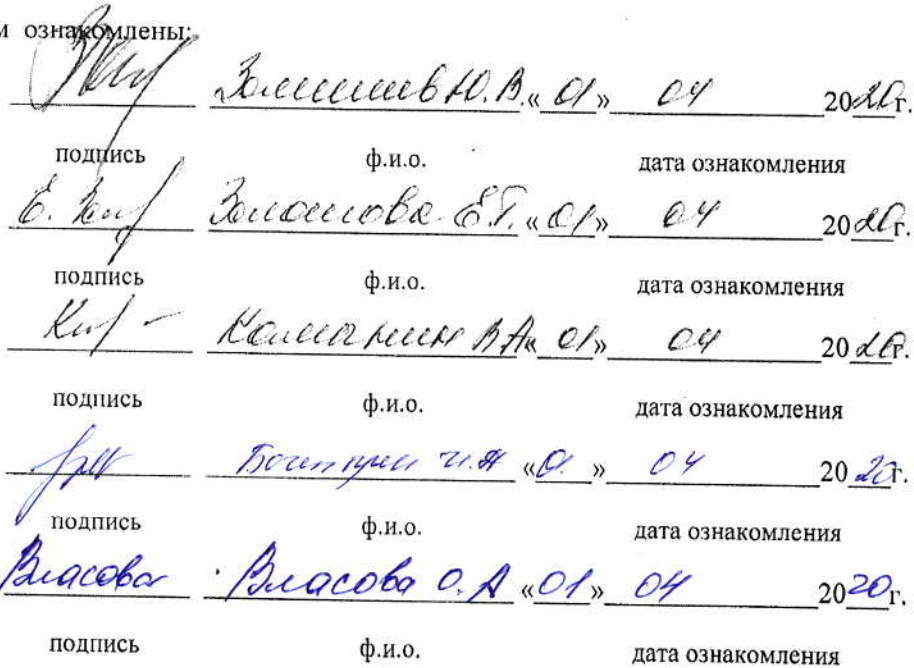 м ознакомлены:
Ю.В. « 01 » 04 2020г.
подпись ф.и.о. дата ознакомления
Е. Е.Г. « 01 » 04 2020г.
подпись ф.и.о. дата ознакомления
В А « 01 » 04 2020г.
подпись ф.и.о. дата ознакомления
« » 04 2020г.
подпись ф.и.о. дата ознакомления
Власова Власова О.А « 01 » 04 2020г.
подпись ф.и.о. дата ознакомления